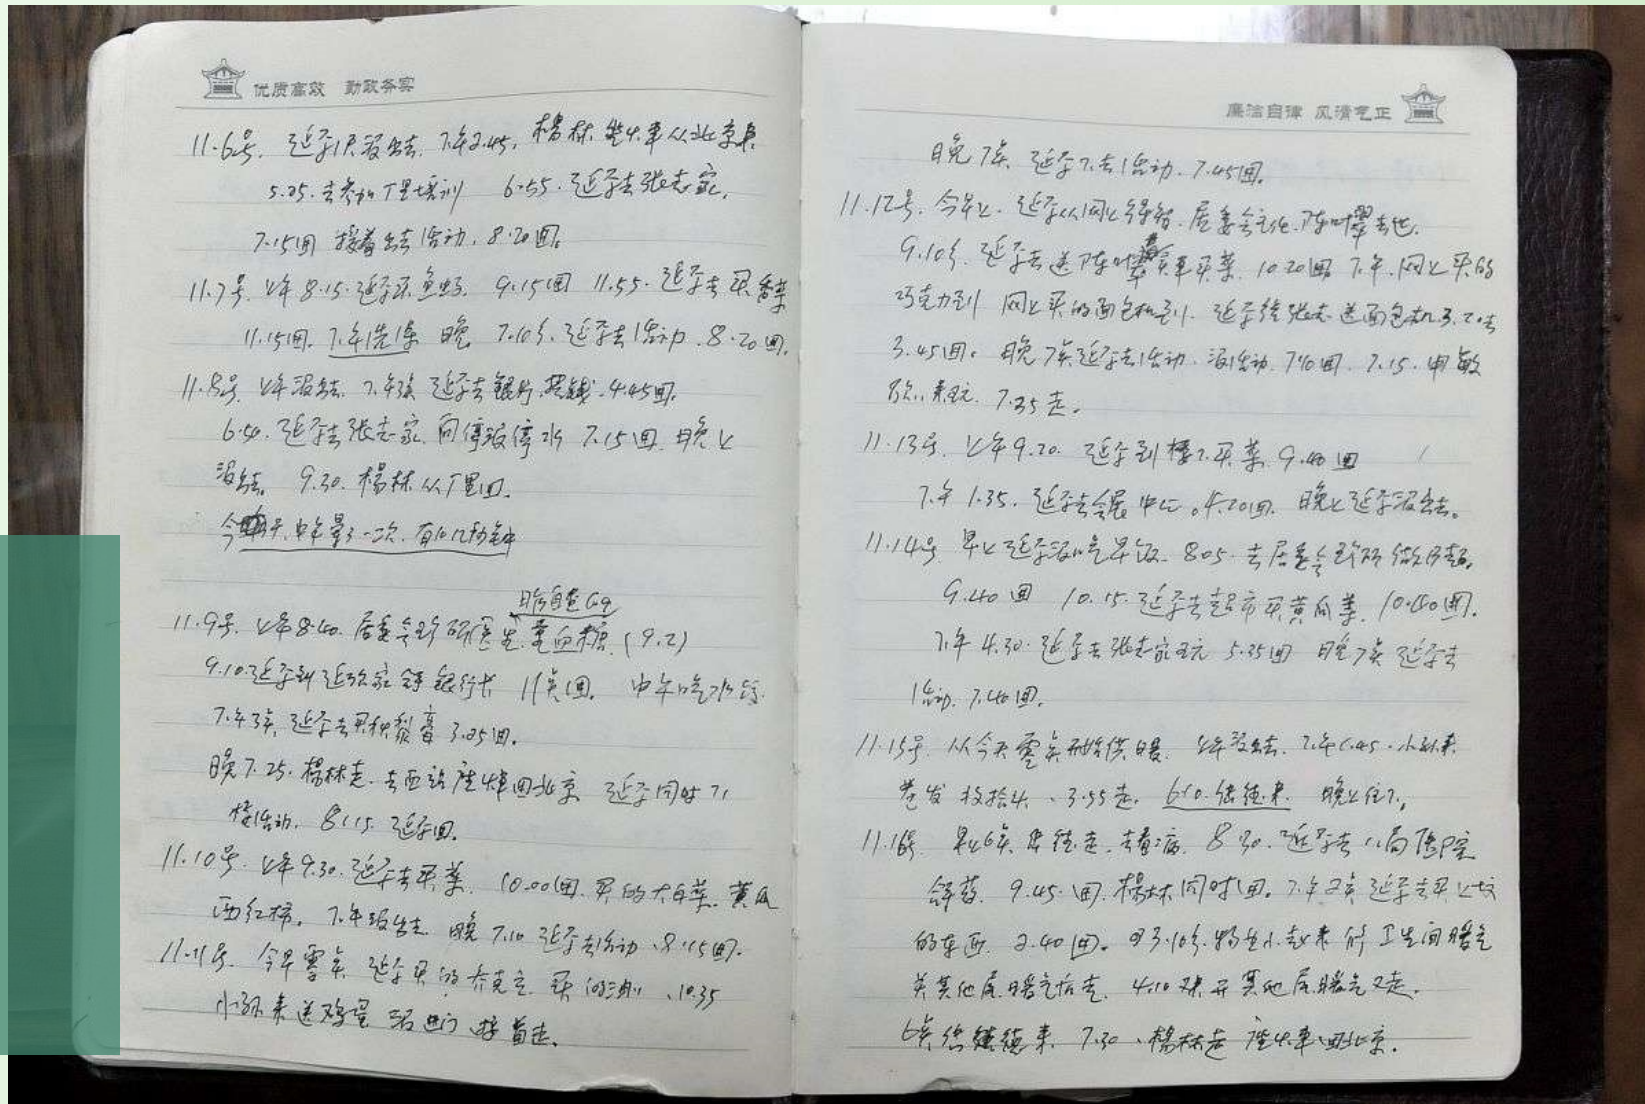 优质高效 勤政务实
11.6号. 延孝1天没出去. 下午2.45. 杨林 坐火车从北京来
5.05. 去参加丁里培训 6.55. 延孝去张志家.
7.15回 接着出去活动. 8.20回.
11.7号. 上午8.15. 延孝买鱼虾. 9.15回 11.55. 延孝去买香菜
11.15回. 下午洗澡 晚 7.10分. 延孝去活动. 8.20回.
11.8号. 上午没出去. 下午 延孝去银行 4.45回.
6.50. 延孝去张志家 问停没停水 7.15回. 晚上
没出去. 9.30. 杨林从丁里回.
今天中午晕了一次. 有10几秒钟
11.9号. 上午8.40. 居委会 医生 量血糖 (9.2)
9.10. 延孝到延 家 银行卡 11点回. 中午吃水饺.
下午3点. 延孝去买秋梨膏 3.05回.
晚7.25. 杨林走. 去西站座火车回北京 延孝同时下
楼活动. 8.15. 延孝回.
11.10号. 上午9.30. 延孝去买菜. 10.00回. 买的大白菜. 黄瓜
西红柿. 下午没出去. 晚 7.10 延孝去活动. 8.15回.
11.11号. 今早零点 延孝买的 10.35
小孙来送鸡蛋 没进门 接着走.
廉洁自律 风清气正
晚7点 延孝下去活动. 7.45回.
11.12号. 今早上. 延孝从网上得知. 居委会主任 陈叶翠去世.
9.10分. 延孝去送陈叶翠 买菜. 10.20回 下午. 网上买的
巧克力到 网上买的面包机到. 延孝给张志送面包机
3.45回. 晚7点延孝去活动. 没活动. 7.10回. 7.15. 申敏
来玩. 7.35走.
11.13号. 上午9.20. 延孝到楼下买菜. 9.40回
下午1.35. 延孝去会展中心. 4.20回. 晚上延孝没出去.
11.14号. 早上延孝没吃早饭. 8.05. 去居委会
9.40回 10.15. 延孝去超市买黄瓜菜. 10.40回.
下午4.30. 延孝去张志家玩 5.35回 晚7点 延孝去
活动. 7.40回.
11.15号. 从今天零点开始供暖. 上午没出去. 下午1.45. 小孙来
卷发 收拾头. 3.55走. 6.10. 继德来. 晚上住下.
11.16号. 早上6点 继德走. 去看病. 8.30. 延孝去 局医院
拿药. 9.45. 回. 杨林同时回. 下午2点 延孝去买上坟
的东西. 2.40回. 3.10分. 物业小赵来修卫生间暖气
关其他屋暖气后走. 4.10 来开其他屋暖气又走.
6点 继德来. 7.30. 杨林走 座火车回北京.